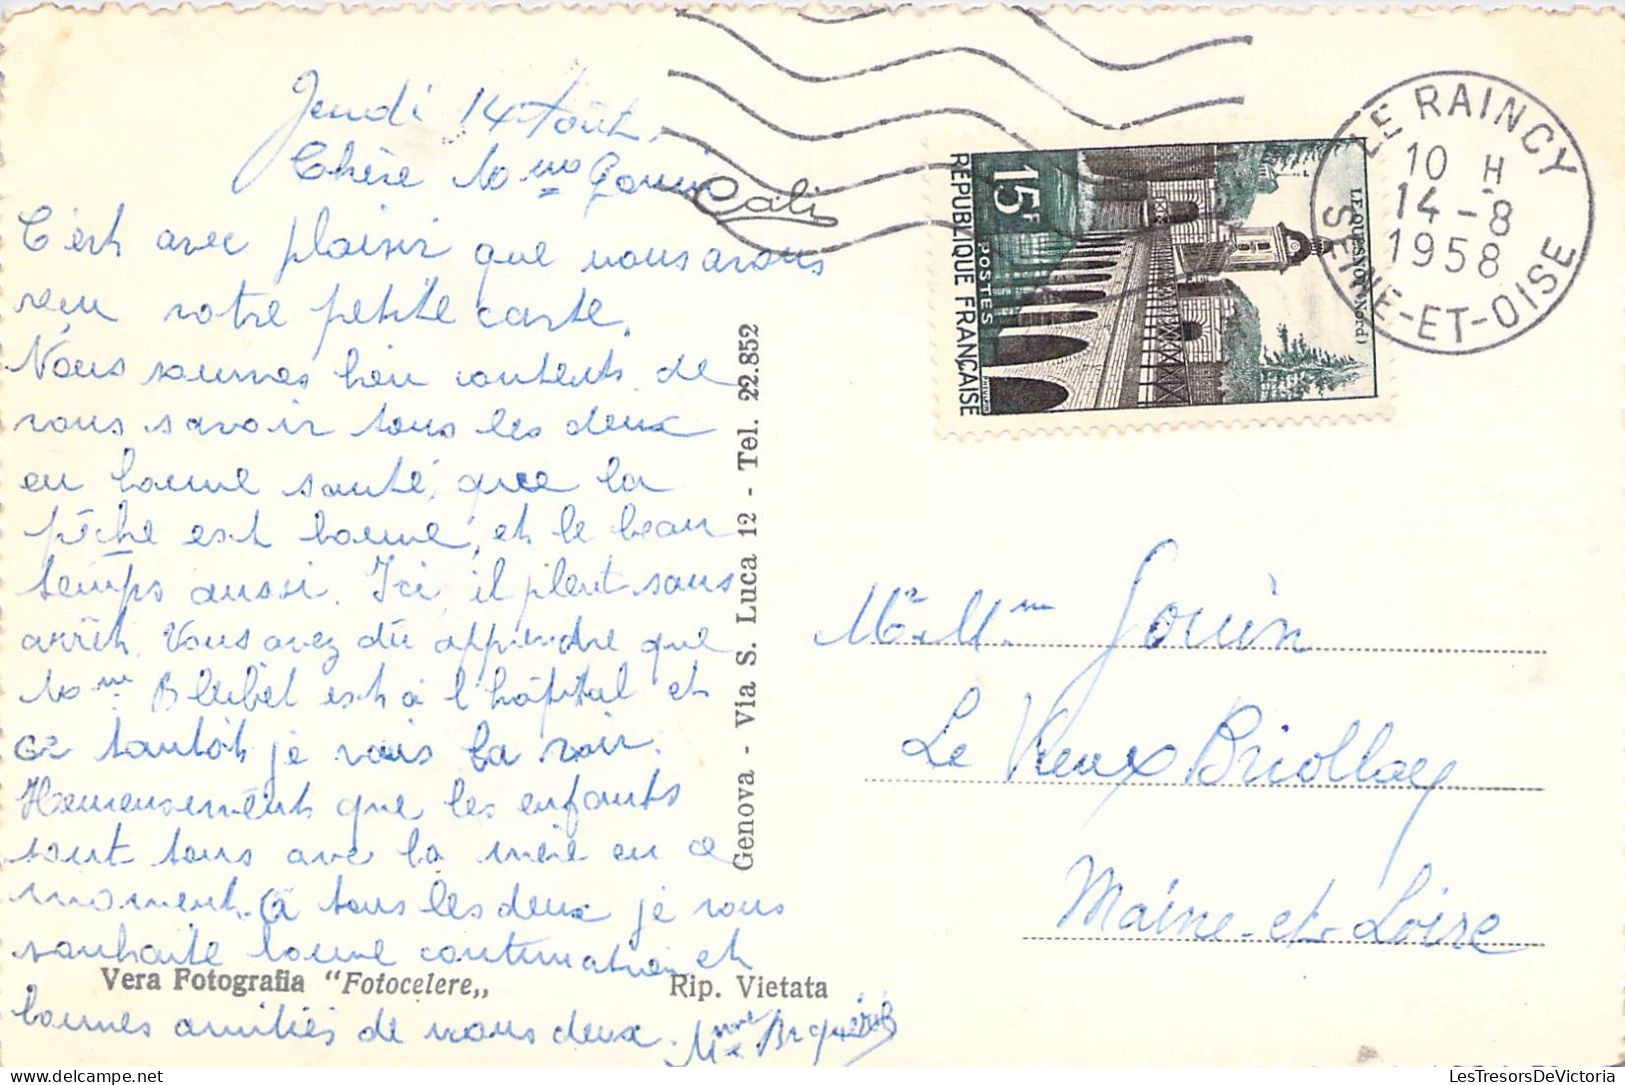 Jeudi 14 Août.
Chère Mme Gouin
C'est avec plaisir que nous avons
reçu votre petite carte.
Nous sommes bien contents de
vous savoir tous les deux
en bonne santé, que la
pêche est bonne, et le beau
temps aussi. Ici, il pleut sans
arrêt. Vous avez dû apprendre que
Mme est à l'hôpital et
tantôt je vais la voir.
Heureusement que les enfants
sont tous avec la mère en ce
moment. A tous les deux je vous
souhaite bonne continuation et
bonnes amitiés de nous deux.
Mme
Vera Fotografia "Fotocelere„
Rip. Vietata
Genova - Via S. Luca 12 - Tel. 22.852
LE RAINCY
10 H
14-8
1958
SEINE-ET-OISE
15F
POSTES
REPUBLIQUE FRANÇAISE
LE QUESNOY (Nord)
Mr Mme Gouin
Le Vieux Briollay
Maine-et-Loire
LesTresorsDeVictoria